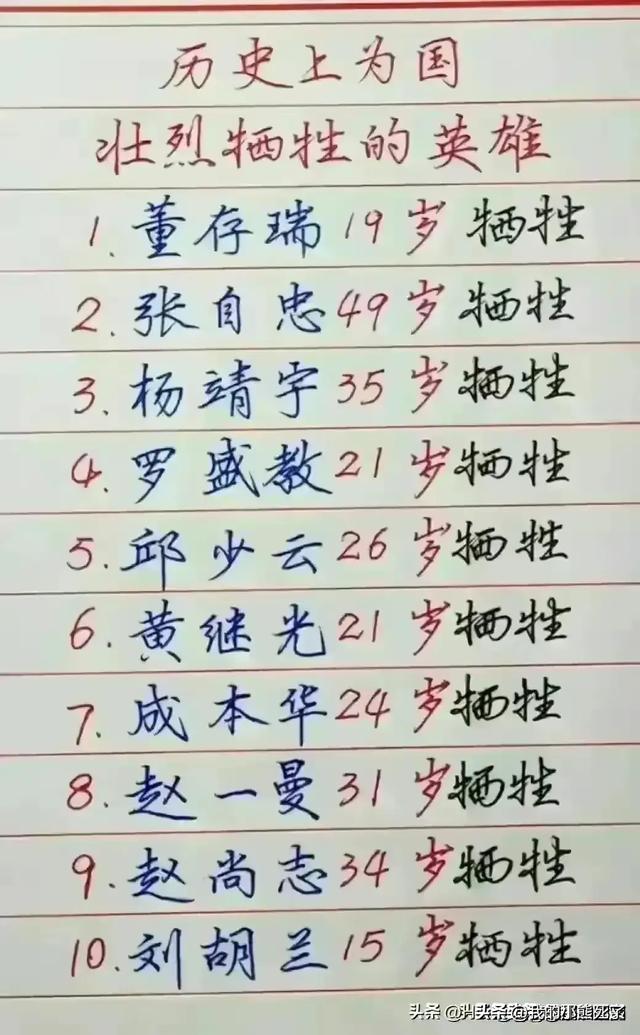 历史上为国
壮烈牺牲的英雄
1.董存瑞19岁牺牲
2.张自忠49岁牺牲
3.杨靖宇35岁牺牲
4.罗盛教21岁牺牲
5.邱少云26岁牺牲
6.黄继光21岁牺牲
7.成本华24岁牺牲
8.赵一曼31岁牺牲
9.赵尚志34岁牺牲
10.刘胡兰15岁牺牲
头条